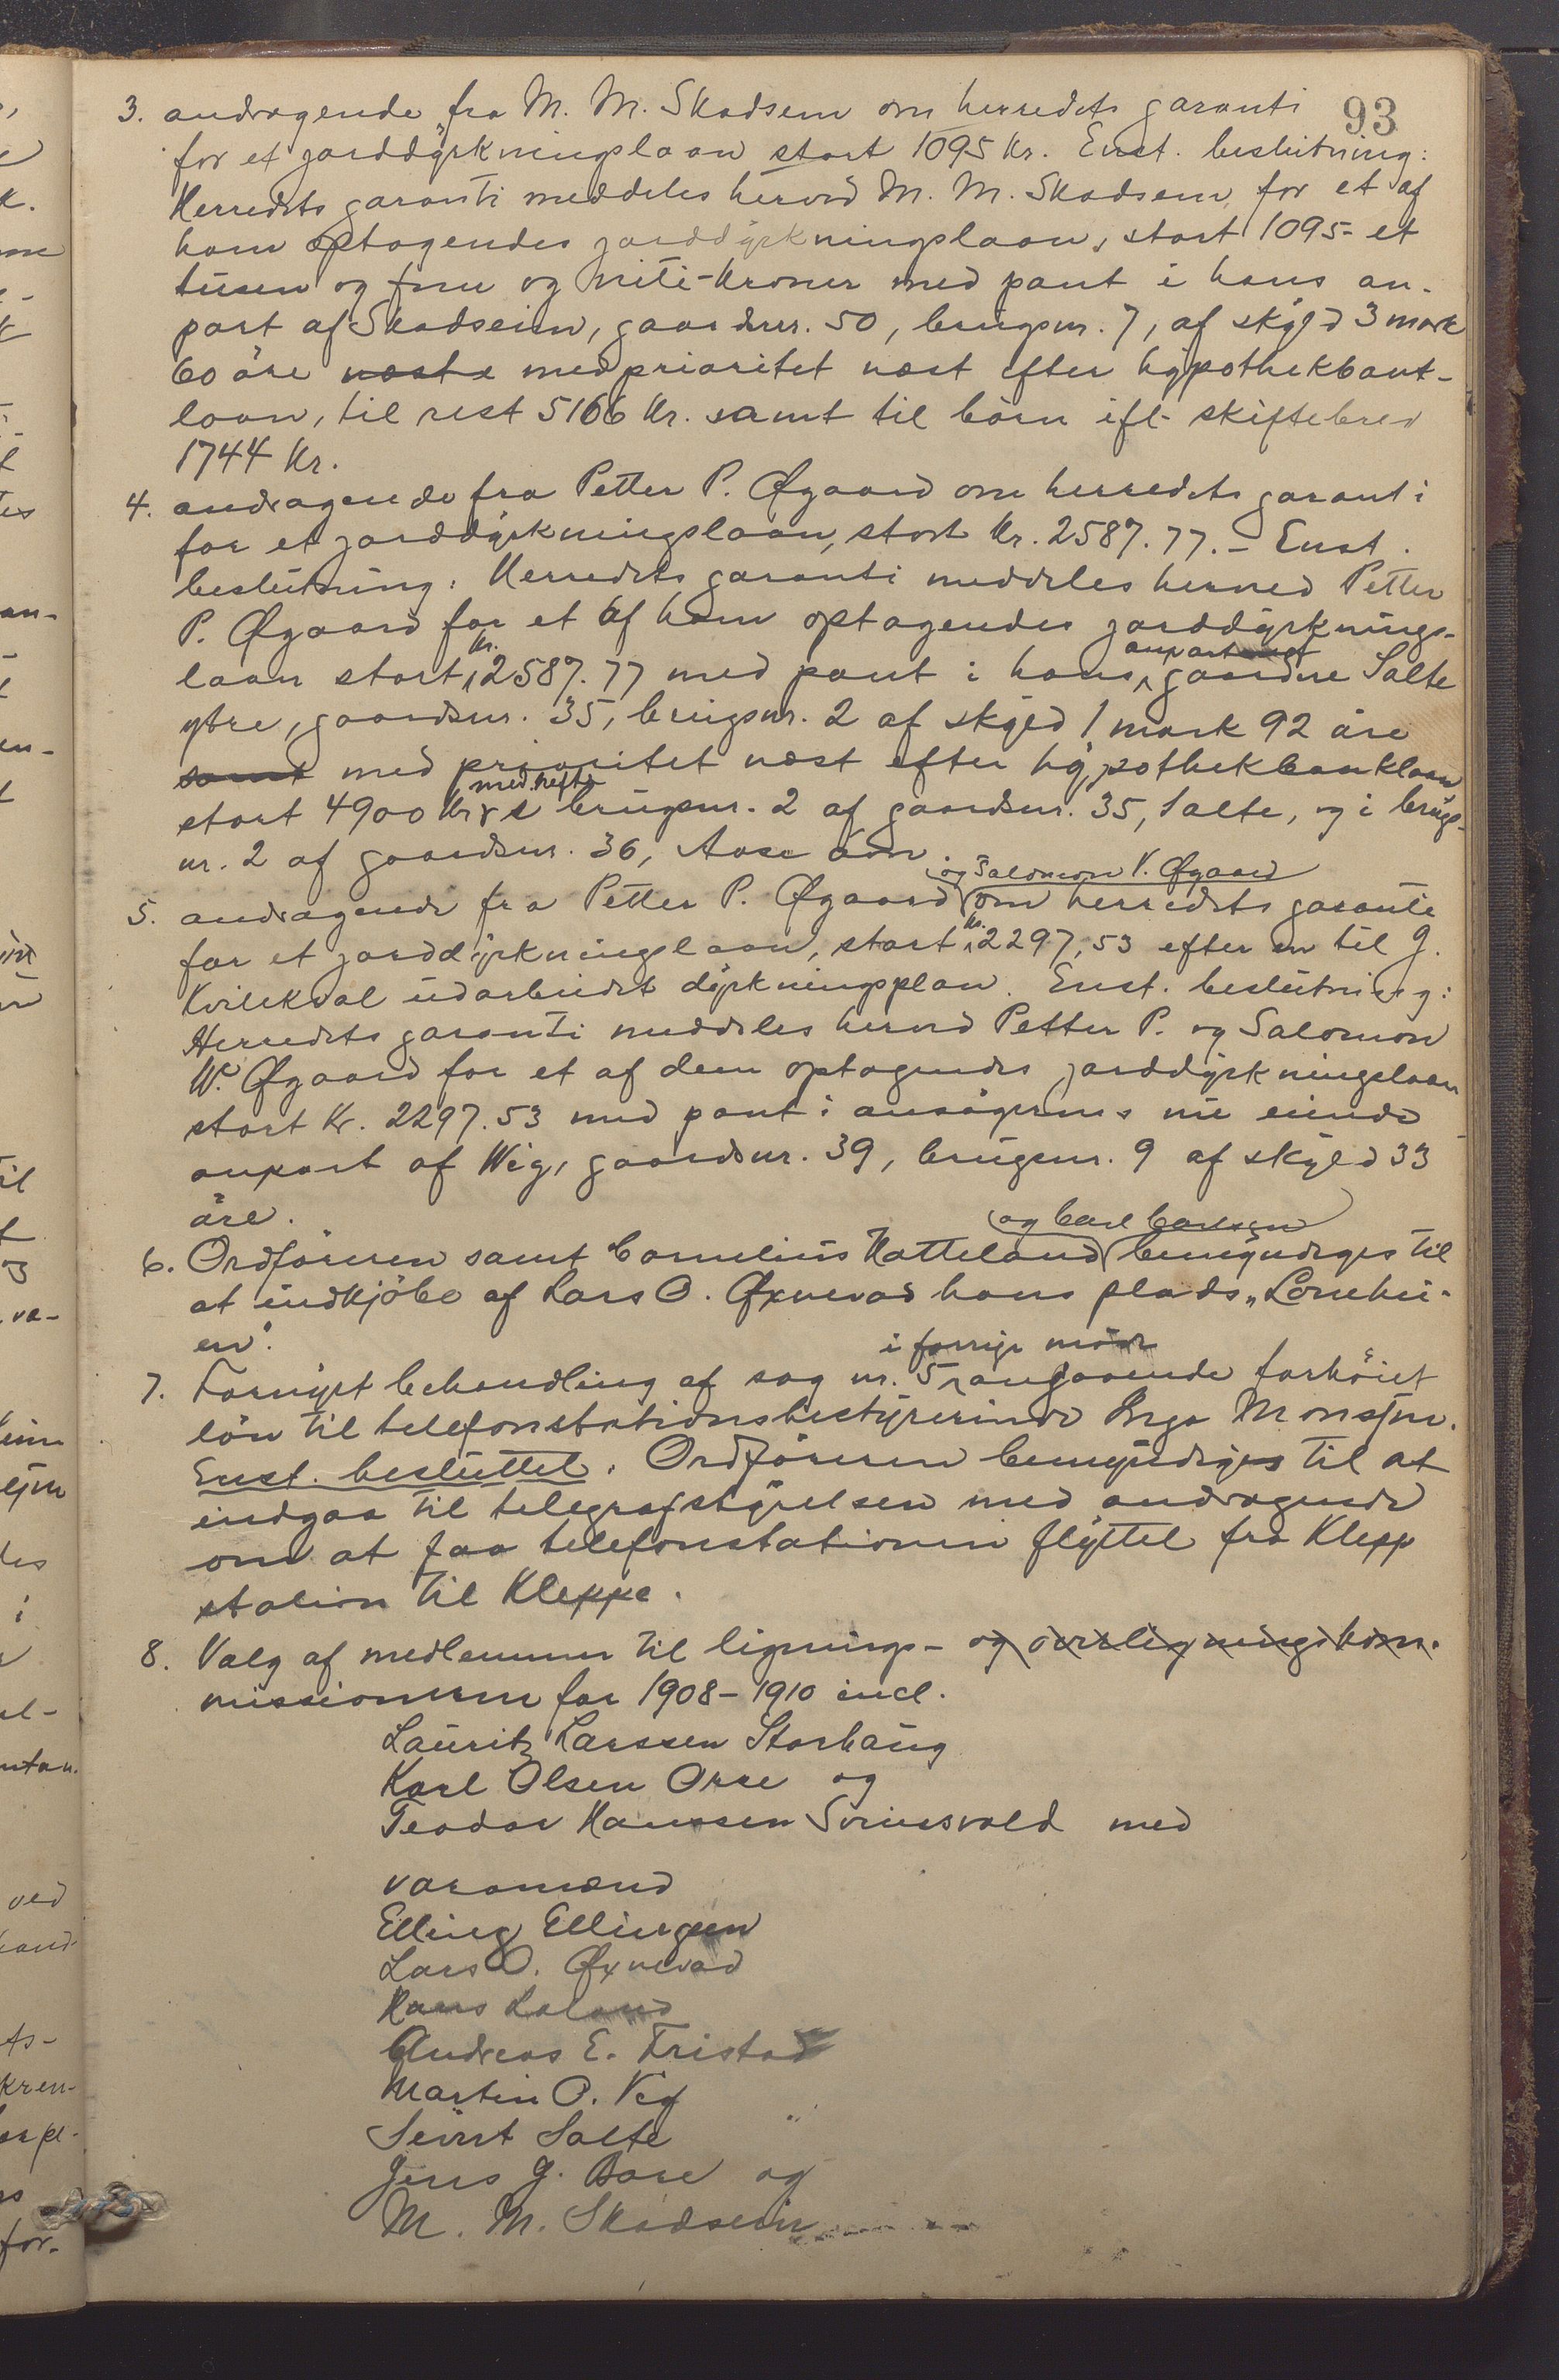 93
3. andragende fra M. M. Skadsem om herredets garanti
for et jorddyrkningslaan stort 1095 Kr. Enst. beslutning:
Herredets garanti meddeles herved M. M. Skadsem for et af
ham optagendes jorddyrkningslaan, stort 1095 - et
tusen og fem og niti - kroner med pant i hans an-
part af Skadseim, gaardsnr. 50, brugsnr. 7, af skyld 3 mark
60 øre næste med prioritet næst efter hypothekbank-
laan, til rest 5166 Kr. samt til børn ifl. skiftebrev
1744 Kr.
4. andragende fra Petter P. Øgaard om herredets garanti
for et jorddyrkningslaan, stort Kr. 2587.77. - Enst.
beslutning: Herredets garanti meddeles herved Petter
P. Øgaard for et af ham optagendes jorddyrknings-
laan stort Kr. 2587.77 med pant i hans anpart af gaardne Salte
ytre, gaardsnr. 35, brugsnr. 2 af skyld 1 mark 92 øre
samt med prioritet næst efter hypothekbanklaan
stort 4900 Kr med hefte brugsnr. 2 af gaardsnr. 35, Salte, og i brugs-
nr. 2 af gaardsnr. 36,
5. andragende fra Petter P. Øgaard og Salomon V. Øgaard om herredets garanti
for et jorddyrkningslaan, stort Kr. 2297,53 efter en til G.
Kvilekval udarbeidet dyrkningsplan. Enst. beslutning:
Herredets garanti meddeles herved Petter P. og Salomon
W. Øgaard for et af dem optagendes jorddyrkningslaan
stort Kr. 2297.53 med pant i ansøgernes nu eiende
anpart af Wig, gaardsnr. 39, brugsnr. 9 af skyld 33
øre.
6. Ordføreren samt Cornelius Hatteland og Carl Carlsen bemyndiges til
at indkjøbe af Lars O. Øxnevad hans plads „
en".
7. Fornyet behandling af sag nr. 5 i forrige møde angaaende forhøiet
løn til telefonstationsbestyrerinde Inga Monsen.
Enst. besluttet. Ordføreren bemyndiges til at
indgaa til telegrafstyrelsen med andragende
om at faa telefonstationen flyttet fra Klepp
station til Kleppe.
8. Valg af medlemmer til lignings- og overligningskom-
missionerne for 1908-1910 incl.
Lauritz Larssen Storhaug
Karl Olsen Orre og
Teodor Hanssen Sviusvold med
varamænd
Elling Ellingsen
Lars O. Øxnevad
Hans Laland
Andreas E. Tristad
Martin O. Vig
Sivert Salte
Jens G. Bore og
M. M. Skadseim